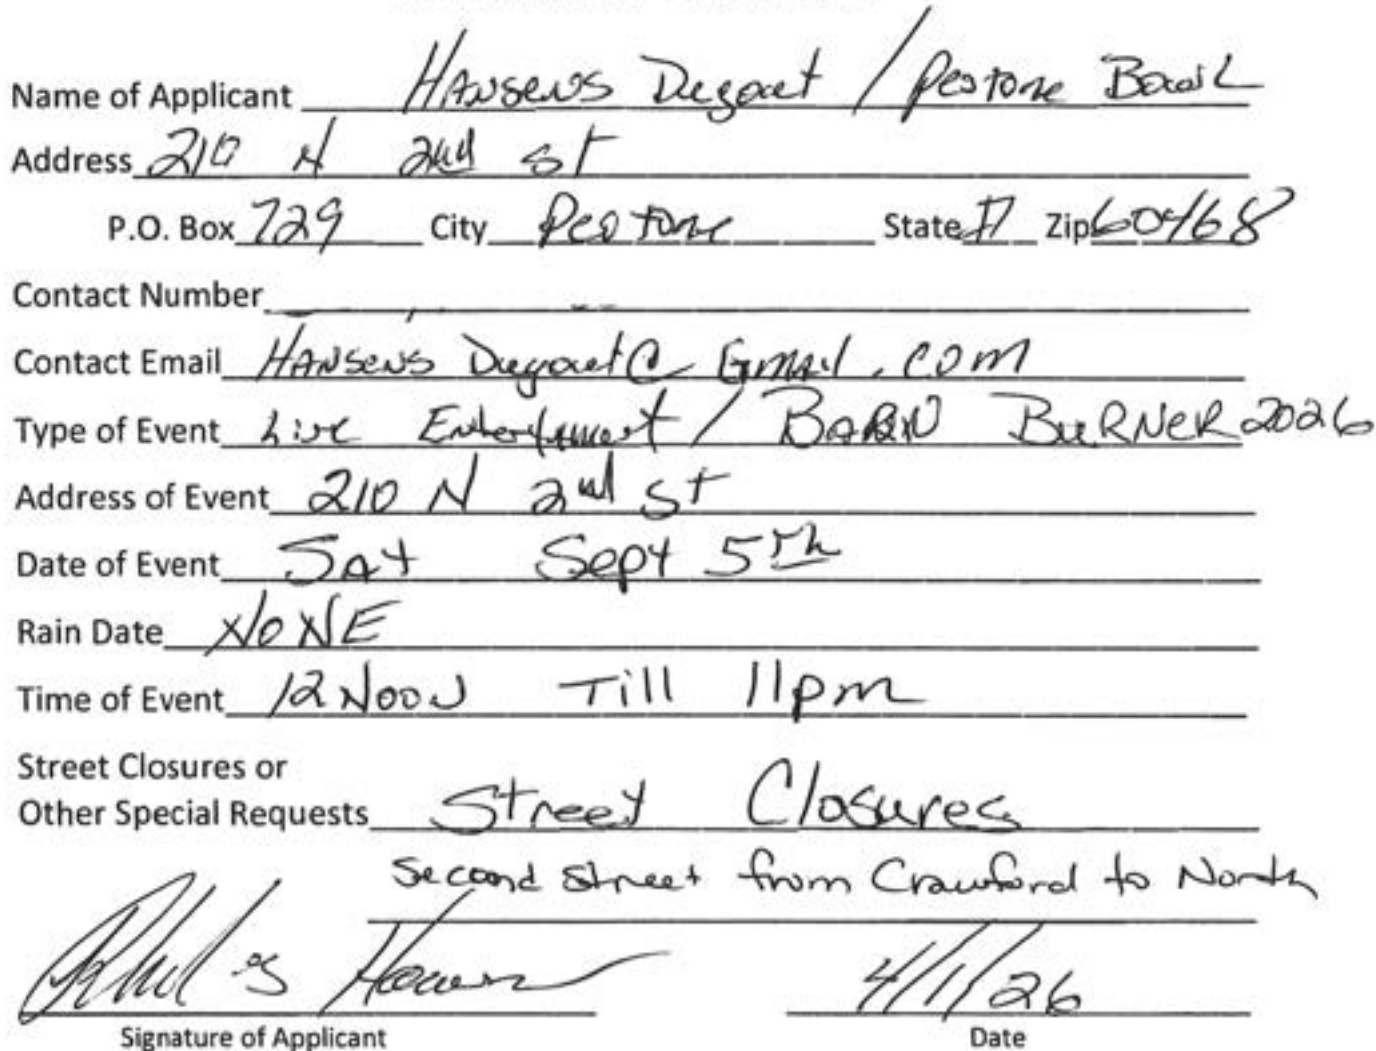 Name of Applicant HANSENS Dugout / Peotone Bowl
Address 210 N 2nd st
P.O. Box 729 City Peotone State Il Zip 60468
Contact Number
Contact Email HANSENS Dugout@ Gmail . com
Type of Event Live Entertainment / BARN BURNER 2026
Address of Event 210 N 2nd St
Date of Event SAt Sept 5th
Rain Date NONE
Time of Event 12 NOON Till 11pm
Street Closures or
Other Special Requests Street Closures
Second Street from Crawford to North
4/1/26
Signature of Applicant Date